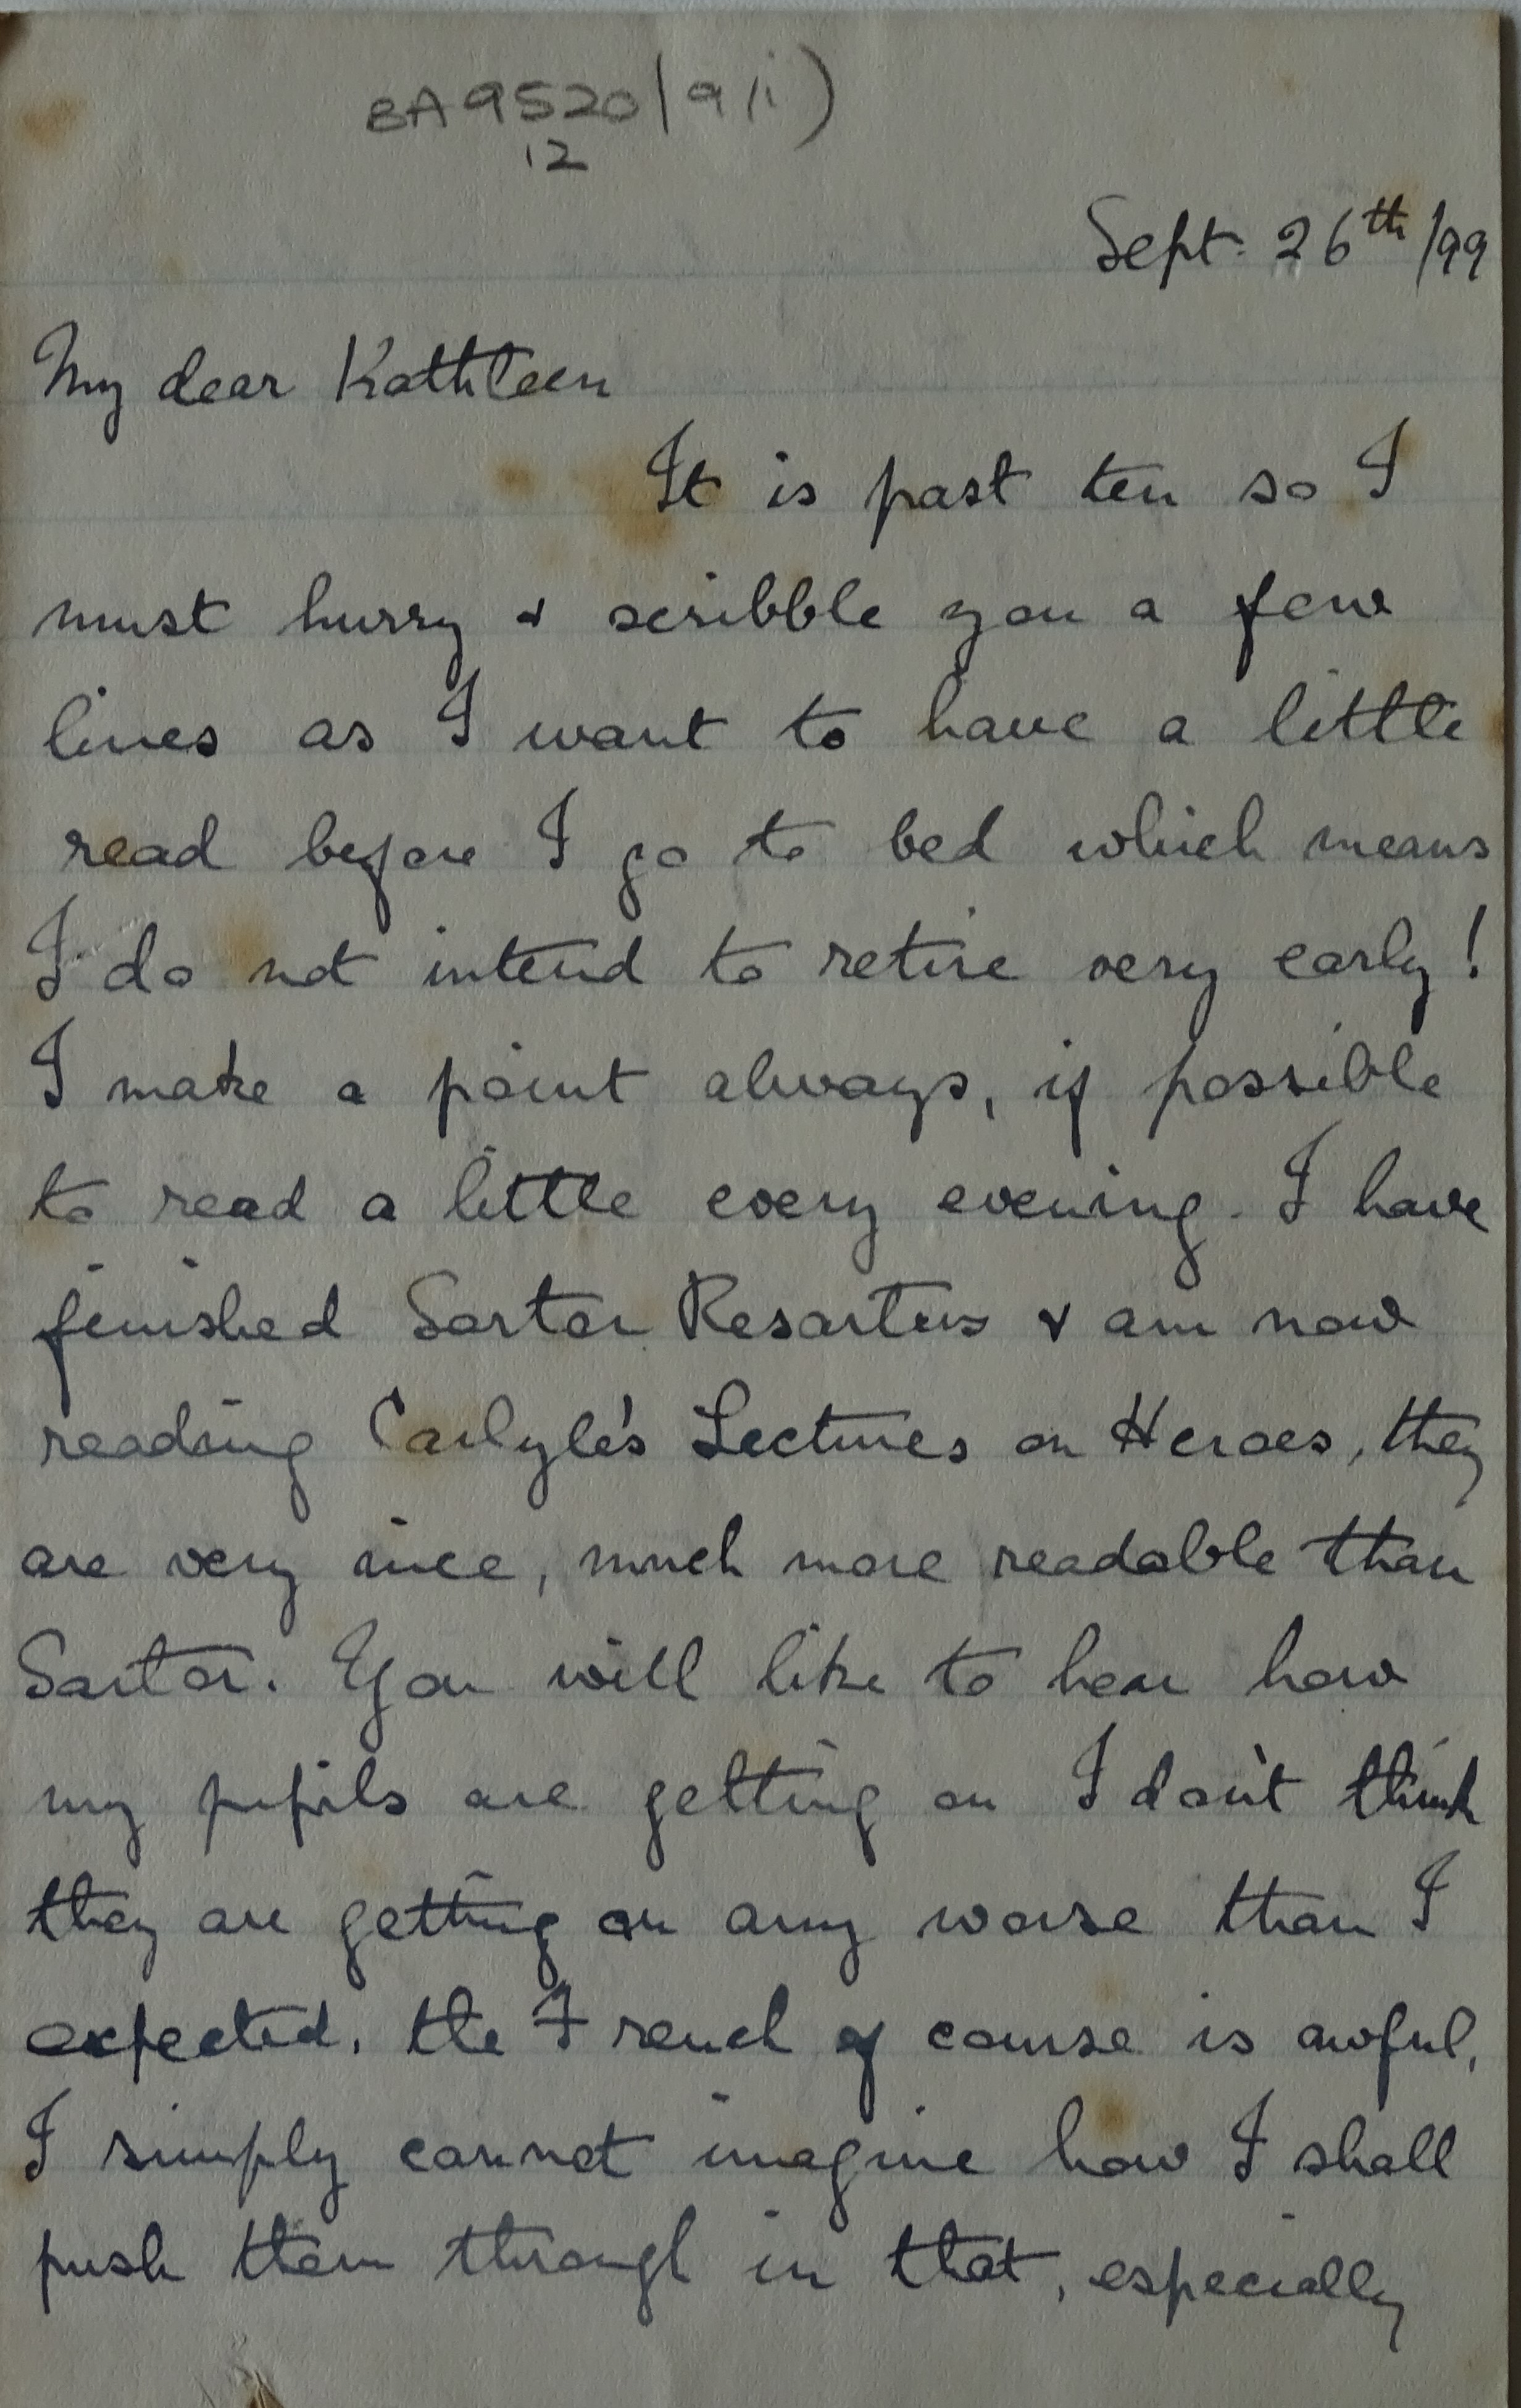 BA9520/9(i)
12
Sept. 26th/99
My dear Kathleen
It is past ten so I
must hurry & scribble you a few
lines as I want to have a little
read before I go to bed which means
I do not intend to retire very early!
I make a point always, if possible
to read a little every evening. I have
finished Sartor Resartus & am now
reading Carlyle's Lectures on Heroes, they
are very nice, much more readable than
Sartor. You will like to hear how
my pupils are getting on I don't think
they are getting on any worse than I
expected. the French of course is awful,
I simply cannot imagine how I shall
push them through in that, especially